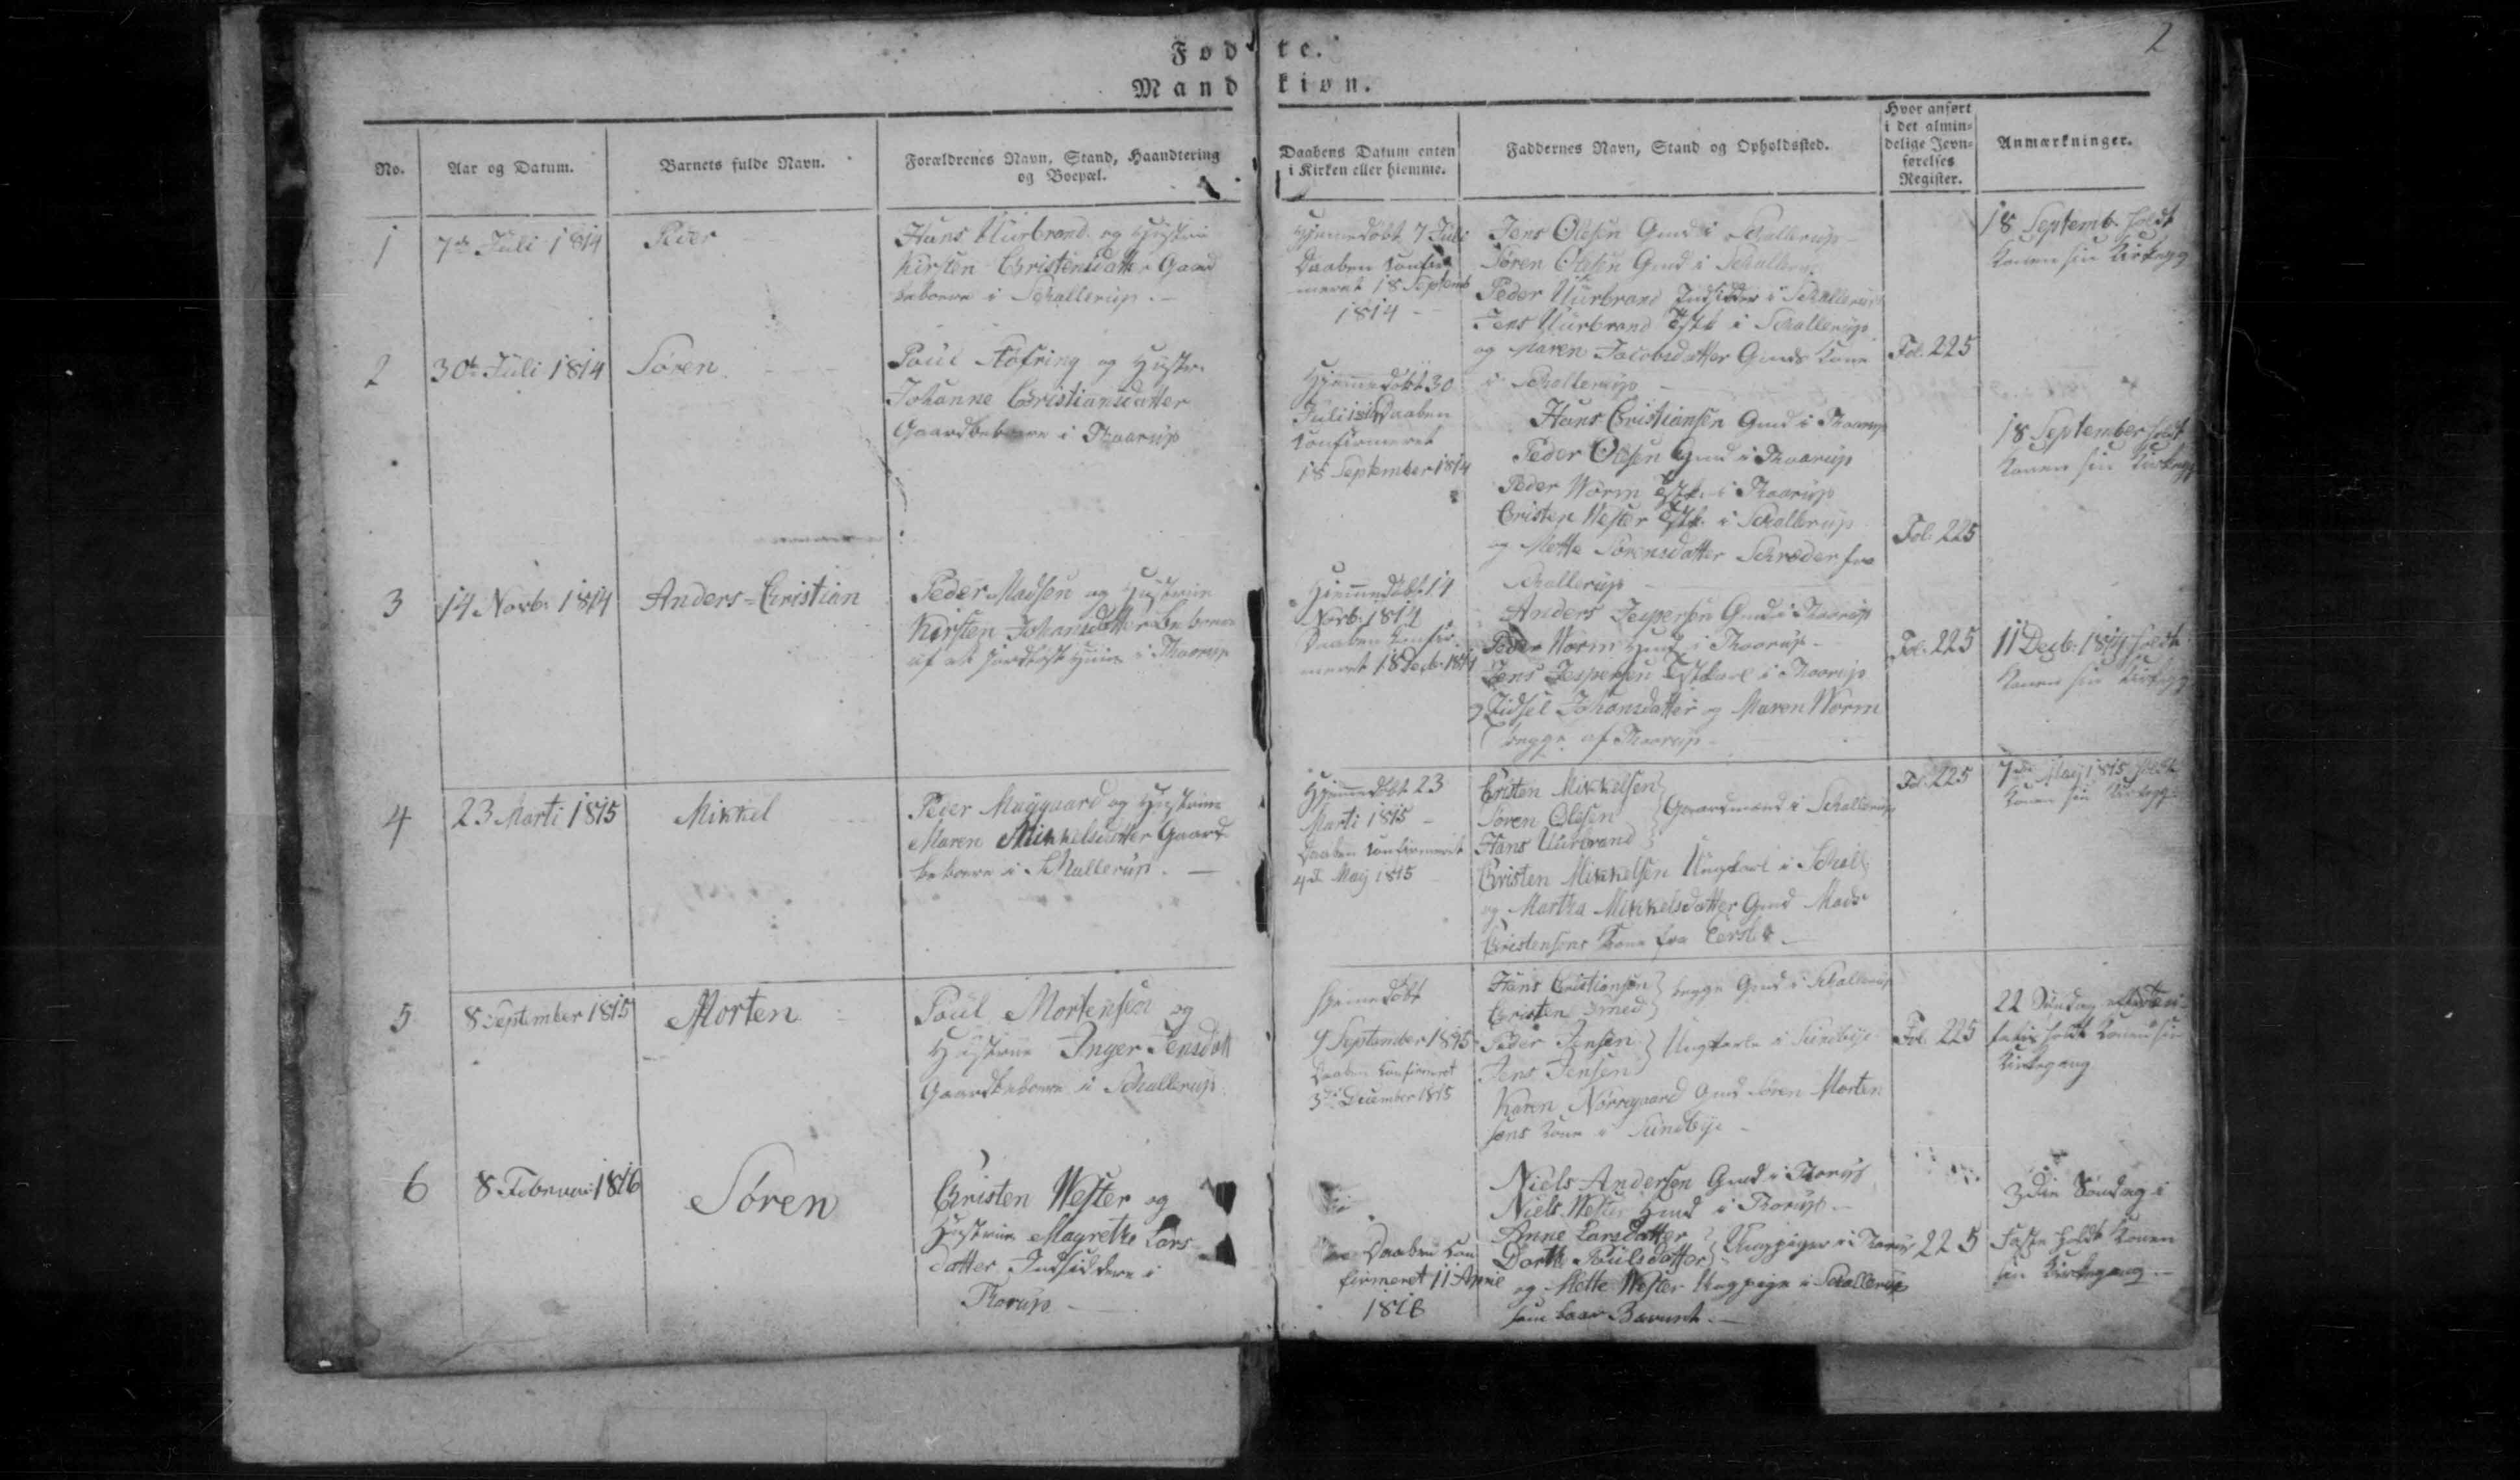 2
Fødte.
Mandkiøn.
No.
Aar og Datum.
Barnets fulde Navn.
Forældrenes Navn, Stand, Haandtering
og Boepæl.
Daabens Datum enten
i Kirken eller hiemme.
Faddernes Navn, Stand og Opholdssted.
Hvor anført
i det almin-
delige Jevn-
førelses
Register.
Anmærkninger.
1
7de Juli 1814
Peder
Hans Uurbrand og Hustrue
Kirsten Christensdatter Gaard
beboere i Schallerup.
Hjemmedøbt 7 Juli
Daaben konfir
meret 18 Septemb
1814
Jens Olesen Gmd i Schallerup
Søren Olesen Gmd i Schallerup
Peder Uurbrand Indsidder i Schallerup
Jens Uurbrand i Schallerup
og Maren Jacobsdatter Gmds Kone
i Schallerup
Fol. 225
18 Septemb. holdt
Konen sin Kirkegg
2
30te Juli 1814
Søren
Poul Høfring og Hustr.
Johanne Christiansdatter
Gaardbeboere i Thaarup
Hjemmedøbt 30
Juli 1814 Daaben
konfirmeret
18 September 1814
Hans Christiansen Gmd i Thaarup
Peder Olesen Gmd i Thaarup
Peder Worm i Thaarup
Cristen Wester i Schallerup
og Mette Sørensdatter Schrøder fra
Schallerup
Fol. 225
18 September holdt
Konen sin Kirkegg
3
14 Novb. 1814
Anders=Christian
Peder Madsen og Hustrue
Kirsten Johansdatter Beboere
af et jordløst Huus i Thaarup
Hjemmedøbt 14
Novb. 1814
Daaben konfir
meret 18 Decb. 1814
Anders Jespersen Gmd i Thaarup
Peder Worm Hmd i Thaarup
Jens Jespersen i Thaarup
og Zidsel Johansdatter og Maren Worm
begge af Thaarup
Fol. 225
11 Decb. 1814 holdt
Konen sin Kirkegg
4
23 Marti 1815
Mikkel
Peder Maygaard og Hustrue
Maren Mikkelsdatter Gaard
beboere i Schallerup.
Hjemmedøbt 23
Marti 1815
Daaben konfirmeret
May 1815
Cristen Mikkelsen
Søren Olesen
Hans Uurbrand
Gaardmænd i Schallerup
Christen Mikkelsen Ungkarl i Schall.
og Martha Mikkelsdatter Gmd Mads
Christensens Kone fra
Fol. 225
7de May 1815 holdt
Konen sin Kirkegg
5
8 September 1815
Morten
Poul Mortensen og
Hustrue Inger Jensdatt
Gaardbeboere i Schallerup
Hjemmedøbt
9 September 1815
Daaben konfirmeret
3die December 1815
Hans Christiansen
Cristen Smed
begge Gmd i Schallerup
Peder Jensen
Jens Jensen
Ungkarle i Sundbye
Karen Nørregaard Gmd Søren Morten
sens Kone i Sundbye
Fol. 225
22 Søndag efter
holdt Konen sin
Kirkegang
6
8 Februari 1816
Søren
Christen Wester og
Hustrue Magrethe Lars
datter Indsiddere i
Thorup
Daaben kon
firmeret
1816
Niels Andersen Gmd i Thorup
Niels Wester Hmd i Thorup
Anne Larsdatter
Dorth Poulsdatter
Ungpiger i Thorup
og Mette Wester Ungpige i Schallerup
som baar Barnet
225
3die Søndag i
Faste holdt Konen
sin Kirkegang